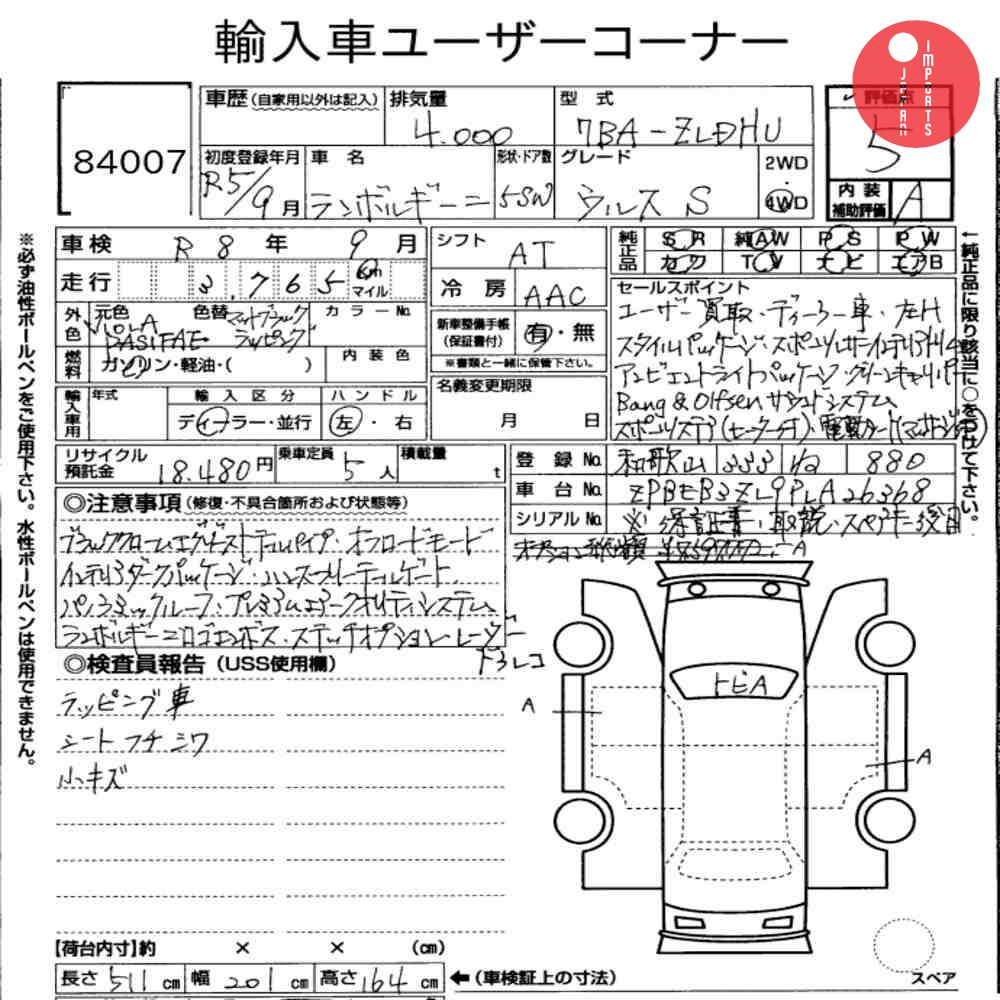 輸入車ユーザーコーナー
JAPAN IMPORTS
84007
車歴 (自家用以外は記入) 排気量 型式 評価点
4.000 7BA-ZLDHU 5
初度登録年月 車名 形状・ドア数 グレード 2WD
R5/9月 ランボルギーニ 5SW ウルス S 4WD
内装補助評価 A
車検 R 8年 9月 シフト AT
純正品 SR 純AW PS PW
カワ TV ナビ エアB
走行 3.765 km マイル
冷房 AAC
セールスポイント
外色 元色 色替 カラーNo.
VIOLA PASIFAE マットブラックラッピング
新車整備手帳(保証書付) 有・無
※書類と一緒に保管下さい。
ユーザー買取・ディーラー車・左H
スタイルパッケージ・スポーツレザーインテリア
アンビエントライトパッケージ・グリーンキャリパー
Bang & Olfsen サウンドシステム
燃料 ガソリン・軽油・( ) 内装色
名義変更期限
月 日
輸入車用 年式 輸入区分 ハンドル
ディーラー・並行 左・右
リサイクル預託金 18.480円 乗車定員 5人 積載量 t
登録No. 和歌山 333 ね 880
車台No. ZPBEB3ZL9PLA26368
シリアルNo. ※保証書・取説・スペアキー後日
◎注意事項 (修復・不具合箇所および状態等)
ブラッククロームエグゾーストテールパイプ・オフロードモード
インテリアダークパッケージ・ハンズフリーテールゲート
パノラミックルーフ・プレミアムエアークオリティシステム
ランボルギーニロゴエンボス・ステッチオプション・レーダー
ドラレコ
◎検査員報告 (USS使用欄)
ラッピング車
シートフチシワ
小キズ
トビA
A
A
【荷台内寸】約 × × (cm)
長さ 511 cm 幅 201 cm 高さ 164 cm ←(車検証上の寸法)
スペア
※必ず油性ボールペンをご使用下さい。水性ボールペンは使用できません。
←純正品に限り該当に○をつけて下さい。